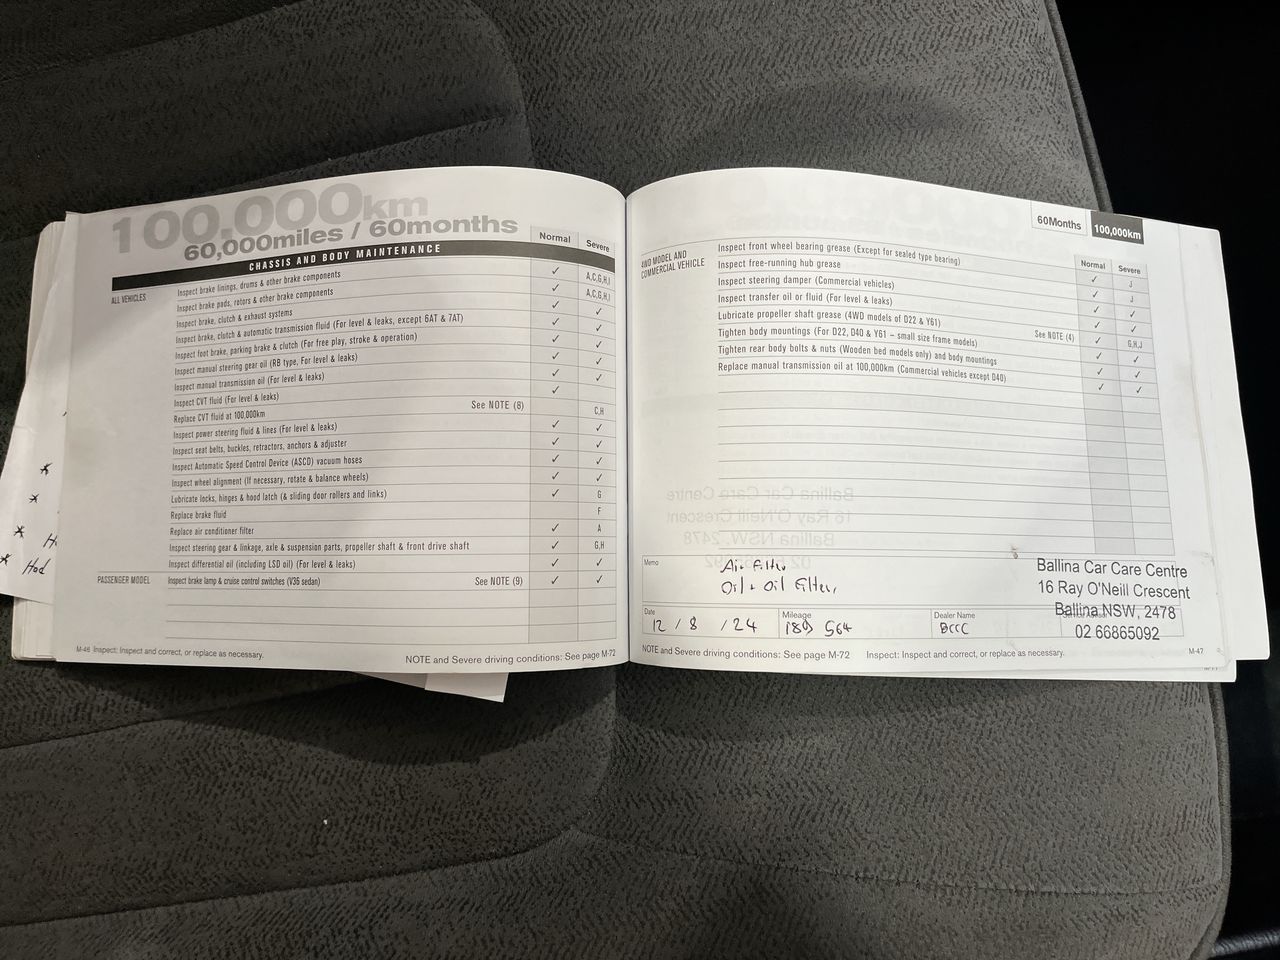 100,000km
60,000miles / 60months
Normal
Severe
CHASSIS AND BODY MAINTENANCE
ALL VEHICLES
Inspect brake linings, drums & other brake components ✓ A,C,G,H,I
Inspect brake pads, rotors & other brake components ✓ A,C,G,H,I
Inspect brake, clutch & exhaust systems ✓ ✓
Inspect brake, clutch & automatic transmission fluid (For level & leaks, except 6AT & 7AT) ✓ ✓
Inspect foot brake, parking brake & clutch (For free play, stroke & operation) ✓ ✓
Inspect manual steering gear oil (RB type, For level & leaks) ✓ ✓
Inspect manual transmission oil (For level & leaks) ✓ ✓
Inspect CVT fluid (For level & leaks) ✓
Replace CVT fluid at 100,000km See NOTE (8) C,H
Inspect power steering fluid & lines (For level & leaks) ✓ ✓
Inspect seat belts, buckles, retractors, anchors & adjuster ✓ ✓
Inspect Automatic Speed Control Device (ASCD) vacuum hoses ✓ ✓
Inspect wheel alignment (If necessary, rotate & balance wheels) ✓ ✓
Lubricate locks, hinges & hood latch (& sliding door rollers and links) ✓ G
Replace brake fluid F
Replace air conditioner filter ✓ A
Inspect steering gear & linkage, axle & suspension parts, propeller shaft & front drive shaft ✓ G,H
Inspect differential oil (including LSD oil) (For level & leaks) ✓ ✓
PASSENGER MODEL Inspect brake lamp & cruise control switches (V36 sedan) See NOTE (9) ✓ ✓
M-46 Inspect: Inspect and correct, or replace as necessary.
NOTE and Severe driving conditions: See page M-72
60Months
100,000km
Normal
Severe
4WD MODEL AND
COMMERCIAL VEHICLE
Inspect front wheel bearing grease (Except for sealed type bearing) ✓ J
Inspect free-running hub grease ✓ J
Inspect steering damper (Commercial vehicles) ✓ ✓
Inspect transfer oil or fluid (For level & leaks) ✓ ✓
Lubricate propeller shaft grease (4WD models of D22 & Y61) See NOTE (4) G,H,J
Tighten body mountings (For D22, D40 & Y61 – small size frame models) ✓ ✓
Tighten rear body bolts & nuts (Wooden bed models only) and body mountings ✓ ✓
Replace manual transmission oil at 100,000km (Commercial vehicles except D40) ✓ ✓
Memo
Air Filter
Oil + Oil Filter,
Ballina Car Care Centre
16 Ray O'Neill Crescent
Ballina NSW, 2478
02 66865092
Date
12 / 8 / 24
Mileage
189 564
Dealer Name
BCCC
NOTE and Severe driving conditions: See page M-72 Inspect: Inspect and correct, or replace as necessary.
M-47